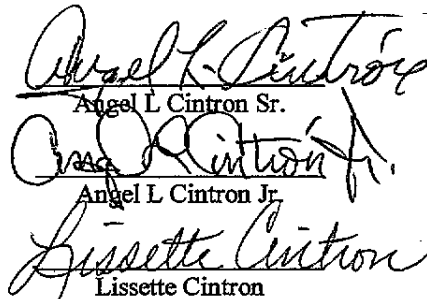 Angel L. Cintrón
Angel L Cintron Sr.
Angel L Cintrón Jr.
Angel L Cintron Jr.
Lissette Cintron
Lissette Cintron